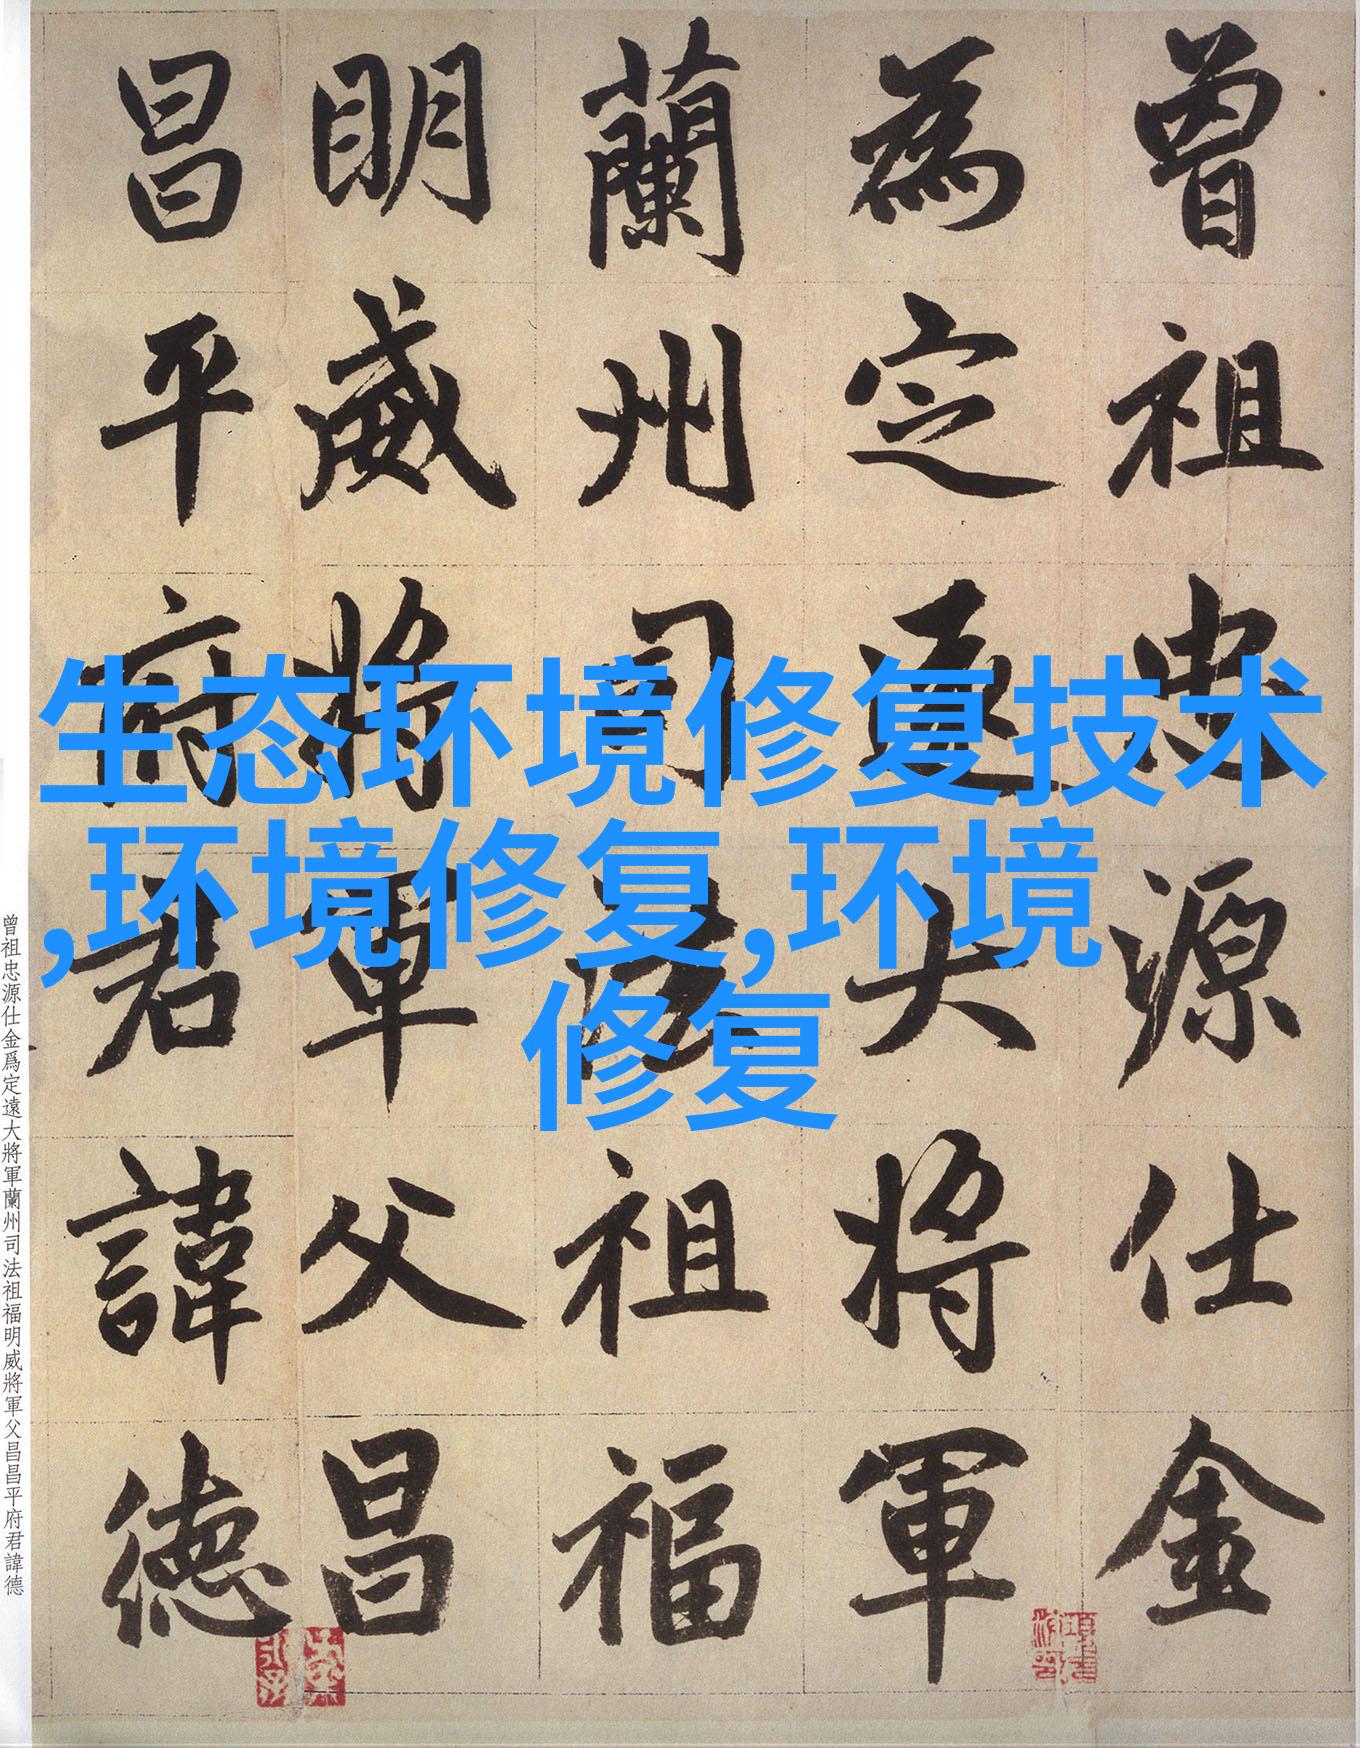 曾祖忠源仕金
為定遠大將軍
蘭州司法祖福
明威將軍父昌
昌平府君諱德
生态环境修复技术
,环境修复,环境
修复
曾祖忠源仕金爲定遠大將軍蘭州司法祖福明威將軍父昌昌平府君諱德